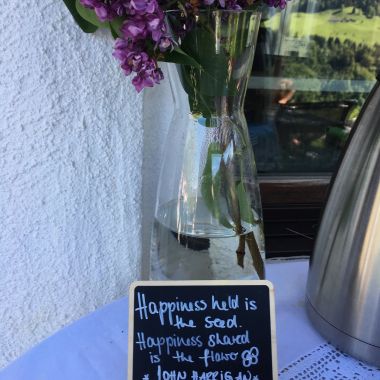 Happiness held is
the seed.
Happiness shared
is the flowr
* JOHN HARRIGAN *